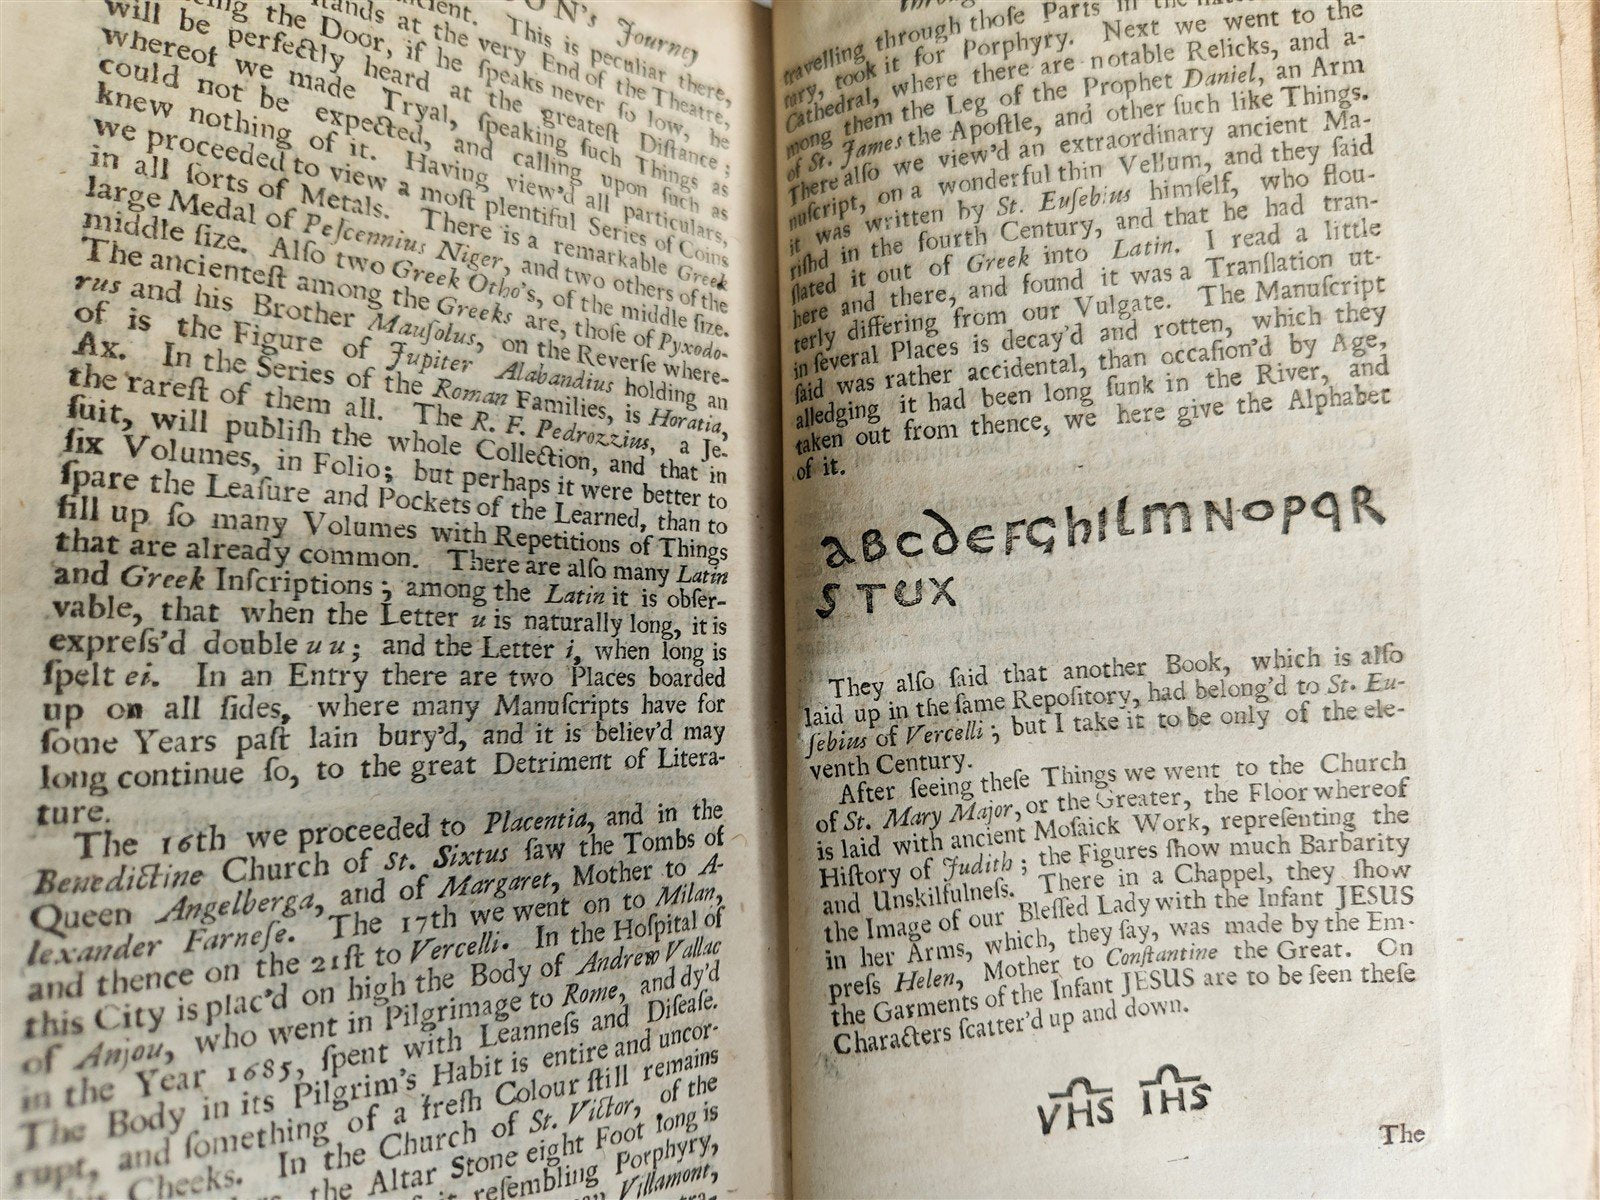 ON's Journey
This is peculiar there,
stands at the very End of the Theatre,
the Door, if he ſpeaks never ſo low, he
will be perfectly heard at the greateſt Diſtance;
whereof we made Tryal, ſpeaking ſuch Things as
could not be expected, and calling upon ſuch as
knew nothing of it. Having view'd all particulars,
we proceeded to view a moſt plentiful Series of Coins
in all ſorts of Metals. There is a remarkable Greek
large Medal of Peſcennius Niger, and two others of the
middle ſize. Alſo two Greek Otho's, of the middle ſize.
The ancienteſt among the Greeks are, thoſe of Pyxodo-
rus and his Brother Mauſolus, on the Reverſe where-
of is the Figure of Jupiter Alabandius holding an
Ax. In the Series of the Roman Families, is Horatia,
the rareſt of them all. The R. F. Pedrozzius, a Je-
ſuit, will publiſh the whole Collection, and that in
ſix Volumes, in Folio; but perhaps it were better to
ſpare the Leaſure and Pockets of the Learned, than to
fill up ſo many Volumes with Repetitions of Things
that are already common. There are alſo many Latin
and Greek Inſcriptions; among the Latin it is obſer-
vable, that when the Letter u is naturally long, it is
expreſs'd double uu; and the Letter i, when long is
ſpelt ei. In an Entry there are two Places boarded
up on all ſides, where many Manuſcripts have for
ſome Years paſt lain bury'd, and it is believ'd may
long continue ſo, to the great Detriment of Litera-
ture.
The 16th we proceeded to Placentia, and in the
Benedictine Church of St. Sixtus ſaw the Tombs of
Queen Angelberga, and of Margaret, Mother to A-
lexander Farneſe. The 17th we went on to Milan,
and thence on the 21ſt to Vercelli. In the Hoſpital of
this City is plac'd on high the Body of Andrew Vallac
of Anjou, who went in Pilgrimage to Rome, and dy'd
in the Year 1685, ſpent with Leanneſs and Diſeaſe.
The Body in its Pilgrim's Habit is entire and uncor-
rupt, and ſomething of a freſh Colour ſtill remains
Cheeks. In the Church of St. Victor, of the
the Altar Stone eight Foot long is
reſembling Porphyry,
Villamont,
travelling through thoſe Parts in the
tury, took it for Porphyry. Next we went to the
Cathedral, where there are notable Relicks, and a-
mong them the Leg of the Prophet Daniel, an Arm
of St. James the Apoſtle, and other ſuch like Things.
There alſo we view'd an extraordinary ancient Ma-
nuſcript, on a wonderful thin Vellum, and they ſaid
it was written by St. Euſebius himſelf, who flou-
riſhd in the fourth Century, and that he had tran-
ſlated it out of Greek into Latin. I read a little
here and there, and found it was a Tranſlation ut-
terly differing from our Vulgate. The Manuſcript
in ſeveral Places is decay'd and rotten, which they
ſaid was rather accidental, than occaſion'd by Age,
alledging it had been long ſunk in the River, and
taken out from thence, we here give the Alphabet
of it.
aBCDEFGhILMNOPQR
STUX
They alſo ſaid that another Book, which is alſo
laid up in the ſame Repoſitory, had belong'd to St. Eu-
ſebius of Vercelli; but I take it to be only of the ele-
venth Century.
After ſeeing theſe Things we went to the Church
of St. Mary Major, or the Greater, the Floor whereof
is laid with ancient Moſaick Work, repreſenting the
Hiſtory of Judith; the Figures ſhow much Barbarity
and Unskilfulneſs. There in a Chappel, they ſhow
the Image of our Bleſſed Lady with the Infant JESUS
in her Arms, which, they ſay, was made by the Em-
preſs Helen, Mother to Conſtantine the Great. On
the Garments of the Infant JESUS are to be ſeen theſe
Characters ſcatter'd up and down.
VHS IHS
The